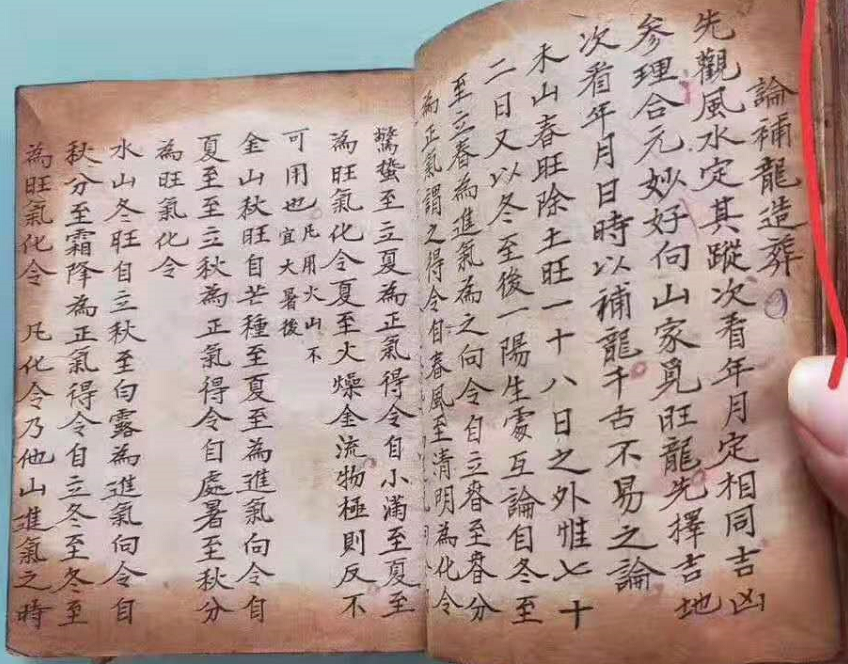 論補龍造葬
先觀風水定其蹤次看年月定相同吉凶
參理合元妙好向山家覓旺龍先擇吉地
次看年月日時以補龍千古不易之論
木山春旺除土旺一十八日之外惟七十
二日又以冬至後一陽生處互論自冬至
至立春為進氣為之向令自立春至春分
為正氣謂之得令自春風至清明為化令
驚蟄至立夏為正氣得令自小滿至夏至
為旺氣化令夏至火燥金流物極則反不
可用也宜大暑後凡用火山不
金山秋旺自芒種至夏至為進氣向令自
夏至至立秋為正氣得令自處暑至秋分
為旺氣化令
水山冬旺自立秋至白露為進氣向令自
秋分至霜降為正氣得令自立冬至冬至
為旺氣化令 凡化令乃他山進氣之時